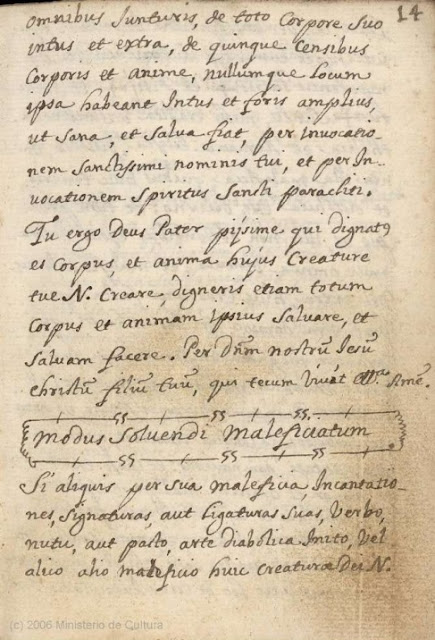 14
omnibus Junturis, de toto Corpore suo
intus et extra, de quinque Censibus
Corporis et anime, nullumque locum
ipsa habeant Intus et foris amplius,
ut Sana, et Salva fiat, per invocatio-
nem Sanctissimi nominis tui, et per In-
vocationem Spiritus Sancti paracliti.
Tu ergo Deus Pater pijsime qui dignat9
es Corpus, et anima hujus Creature
tue N. Creare, digneris etiam totum
Corpus et animam ipsius Salvare, et
Salvam facere. Per Dñm nostrũ Iesũ
Christũ filiũ tuũ, qui tecum Vivat Amē.
modus Solvendi maleficiatum
Si aliquis per sua maleficia, Incantatio-
nes, Signaturas, aut ligaturas suas, Verbo,
nutu, aut pacto, arte diabolica Inito, Vel
alico alio maleficio huic Creaturæ Dei N.
(c) 2006 Ministerio de Cultura